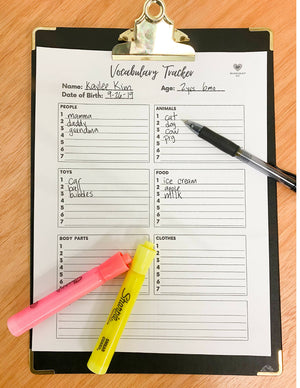 Vocabulary Tracker
Name: Kaylee Kim Age: 2yrs 6mo
Date of Birth: 9-26-19
PEOPLE
1 mamma
2 daddy
3 grandma
4
5
6
7
ANIMALS
1 cat
2 dog
3 cow
4 pig
5
6
7
TOYS
1 car
2 ball
3 bubbles
4
5
6
7
FOOD
1 ice cream
2 apple
3 milk
4
5
6
7
BODY PARTS
1
2
3
4
5
6
7
CLOTHES
1
2
3
4
5
6
7
Sharpie